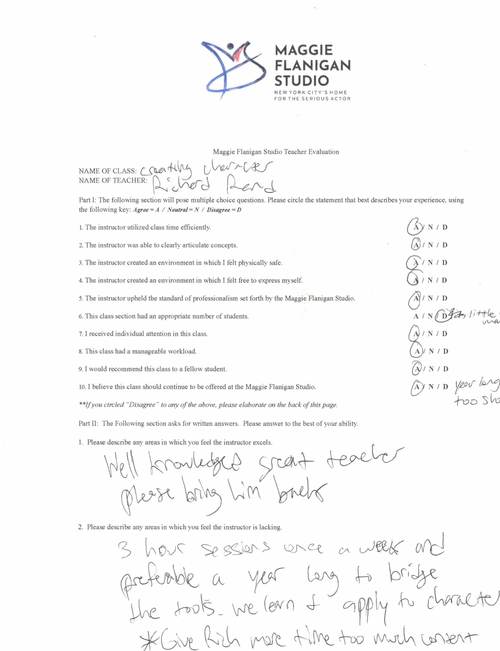 MAGGIE
FLANIGAN
STUDIO
NEW YORK CITY'S HOME
FOR THE SERIOUS ACTOR
Maggie Flanigan Studio Teacher Evaluation
NAME OF CLASS: Creating Character
NAME OF TEACHER: Richard
Part I: The following section will pose multiple choice questions. Please circle the statement that best describes your experience, using
the following key: Agree = A / Neutral = N / Disagree = D
1. The instructor utilized class time efficiently. A / N / D
2. The instructor was able to clearly articulate concepts. A / N / D
3. The instructor created an environment in which I felt physically safe. A / N / D
4. The instructor created an environment in which I felt free to express myself. A / N / D
5. The instructor upheld the standard of professionalism set forth by the Maggie Flanigan Studio. A / N / D
6. This class section had an appropriate number of students. A / N / D little
7. I received individual attention in this class. A / N / D
8. This class had a manageable workload. A / N / D
9. I would recommend this class to a fellow student. A / N / D
10. I believe this class should continue to be offered at the Maggie Flanigan Studio. A / N / D year long
too sho
**If you circled "Disagree" to any of the above, please elaborate on the back of this page.
Part II: The Following section asks for written answers. Please answer to the best of your ability.
1. Please describe any areas in which you feel the instructor excels.
Well great teacher
please bring him back
2. Please describe any areas in which you feel the instructor is lacking.
3 hour sessions once a week and
preferable a year long to bridge
the tools we learn & apply to character
*Give Rich more time too much content